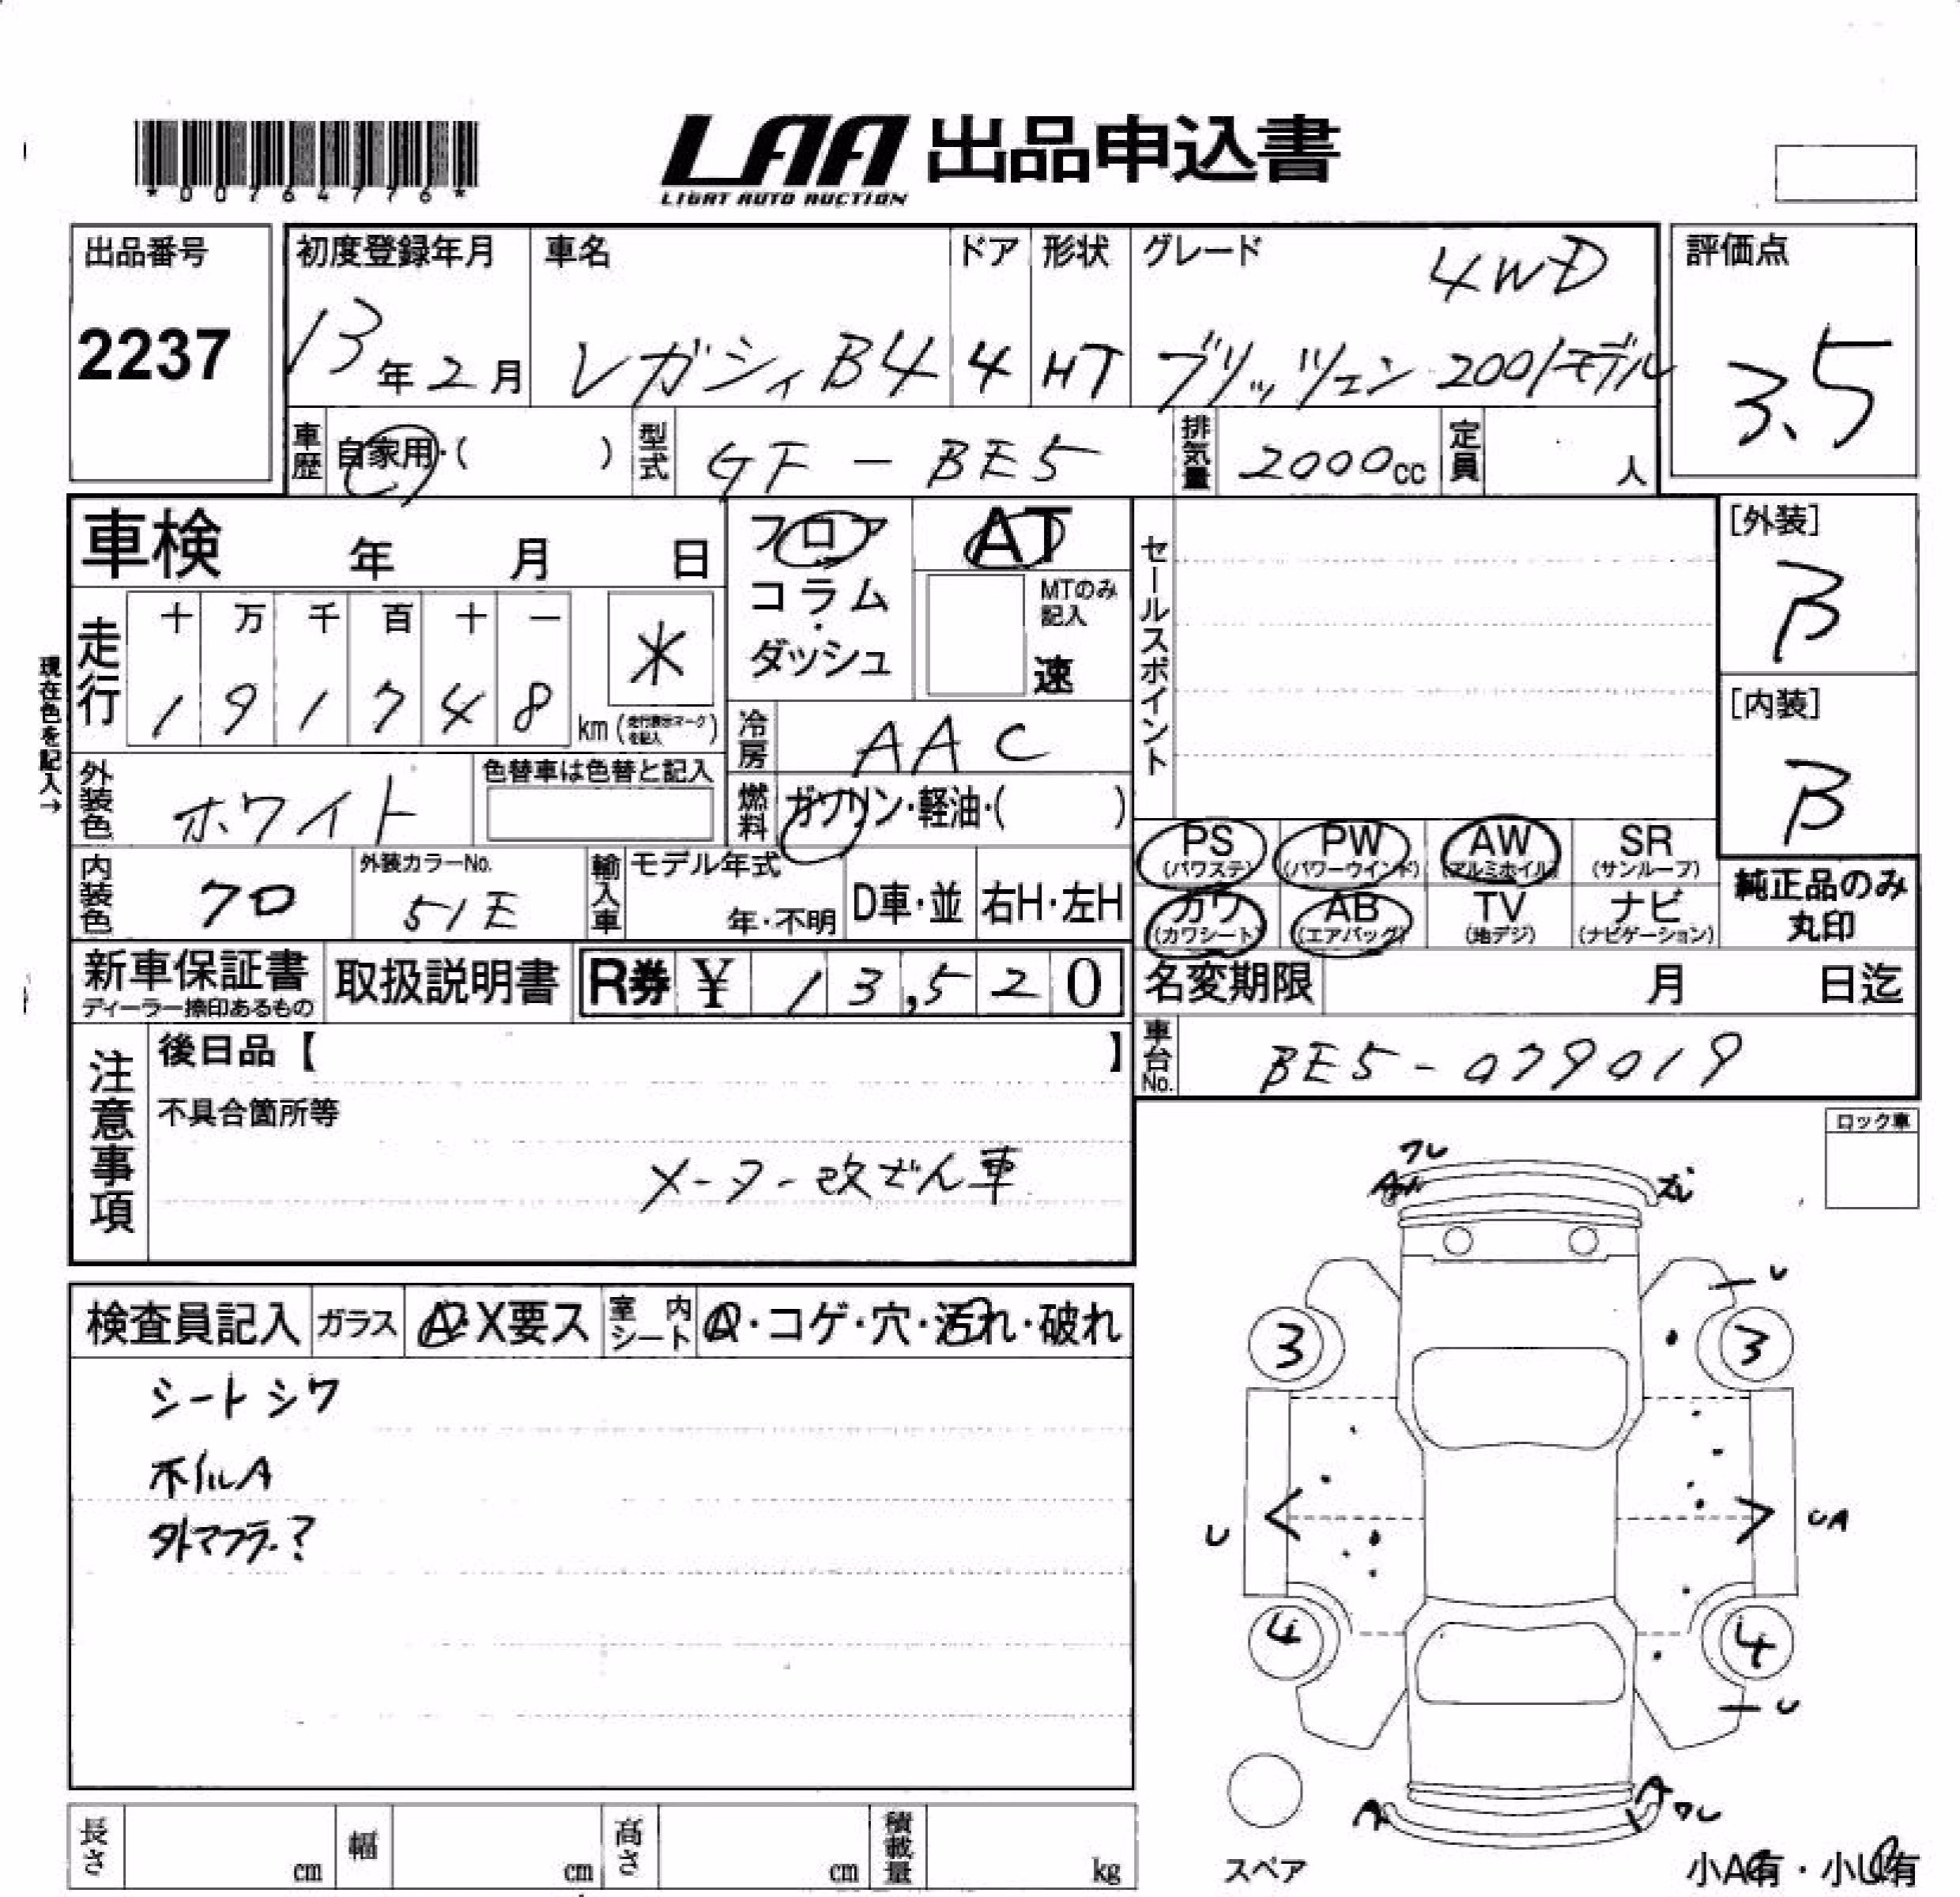 *00764776*
LAA 出品申込書
LIGHT AUTO AUCTION
出品番号
2237
初度登録年月
13年2月
車名
レガシィ B4
ドア
4
形状
HT
グレード
4WD
ブリッツェン 2001モデル
評価点
3.5
車歴 自家用・( )
型式 GF-BE5
排気量 2000cc
定員 人
車検 年 月 日
フロア
コラム・
ダッシュ
AT
MTのみ
記入
速
セールスポイント
[外装]
B
[内装]
B
現在色を記入→
走行
十 万 千 百 十 一
1 9 1 7 4 8 km (走行表示マークを記入)
*
冷房 AAC
外装色 ホワイト
色替車は色替と記入
燃料 ガソリン・軽油・( )
内装色 クロ
外装カラーNo.
51E
輸入車
モデル年式
年・不明
D車・並
右H・左H
PS (パワステ)
PW (パワーウインド)
AW (アルミホイル)
SR (サンルーフ)
カワ (カワシート)
AB (エアバッグ)
TV (地デジ)
ナビ (ナビゲーション)
純正品のみ
丸印
新車保証書
ディーラー捺印あるもの
取扱説明書
R券 ¥ 13,520
名変期限 月 日迄
車台No. BE5-079019
注意事項
後日品【 】
不具合箇所等
メーター改ざん車
ロック車
検査員記入
ガラス A・X要ス
室内シート A・コゲ・穴・汚れ・破れ
シートシワ
ホイルA
外マフラー?
ワレ
ズレ
U
3
3
U
UA
4
4
U
A
A
ワレ
スペア
小A有・小U有
長さ cm
幅 cm
高さ cm
積載量 kg